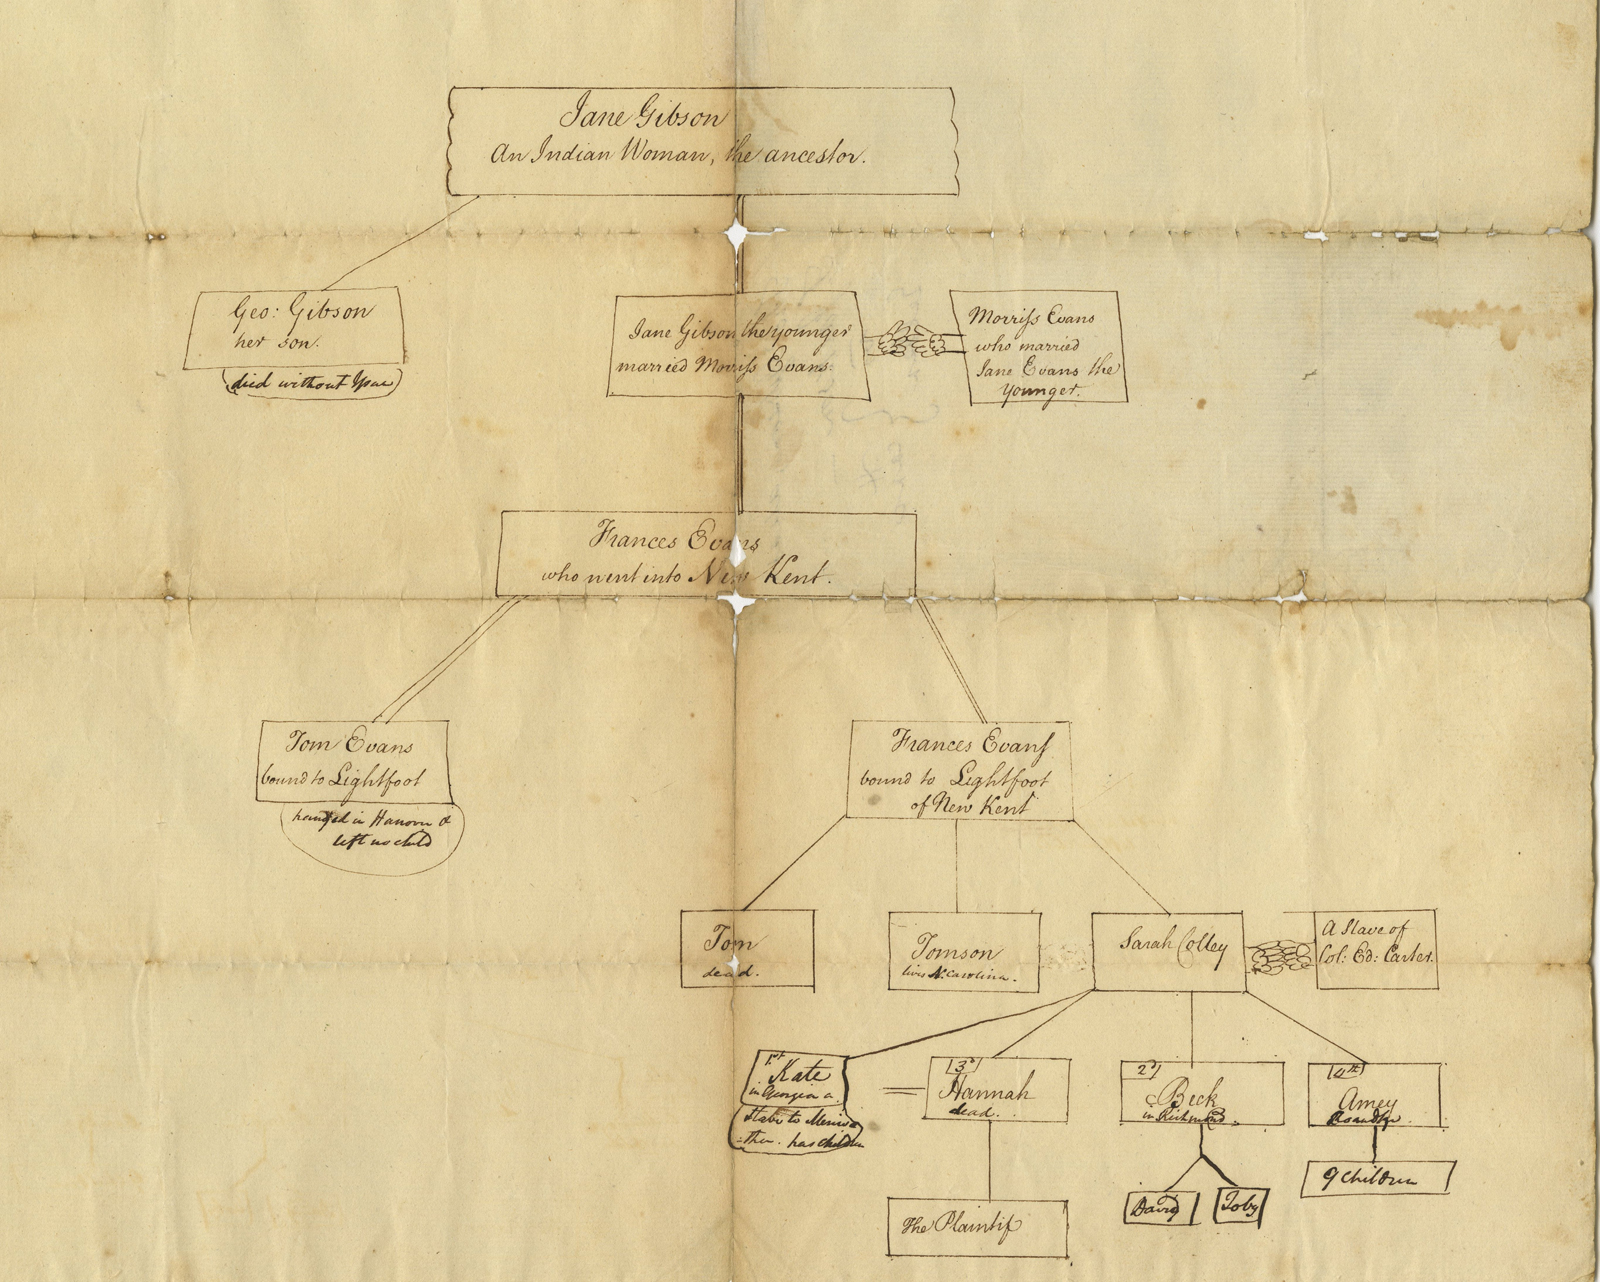 Jane Gibson
An Indian Woman, the ancestor.
Geo: Gibson
her son.
died without Issue
Jane Gibson the younger
married Morriss Evans.
Morriss Evans
who married
Jane Evans the
younger.
Frances Evans
who went into New Kent.
Tom Evans
bound to Lightfoot
hanged in Hanover &
left no child
Frances Evans
bound to Lightfoot
of New Kent
Tom
dead.
Tomson
lives N. Carolina.
Sarah Colley
A Slave of
Col: Ed: Carter.
1st
Kate
in Georgia a
Slave to
has children
3d
Hannah
dead.
2d
Beck
in Richmond.
4th
Amey
The Plaintif
David
Toby
9 children